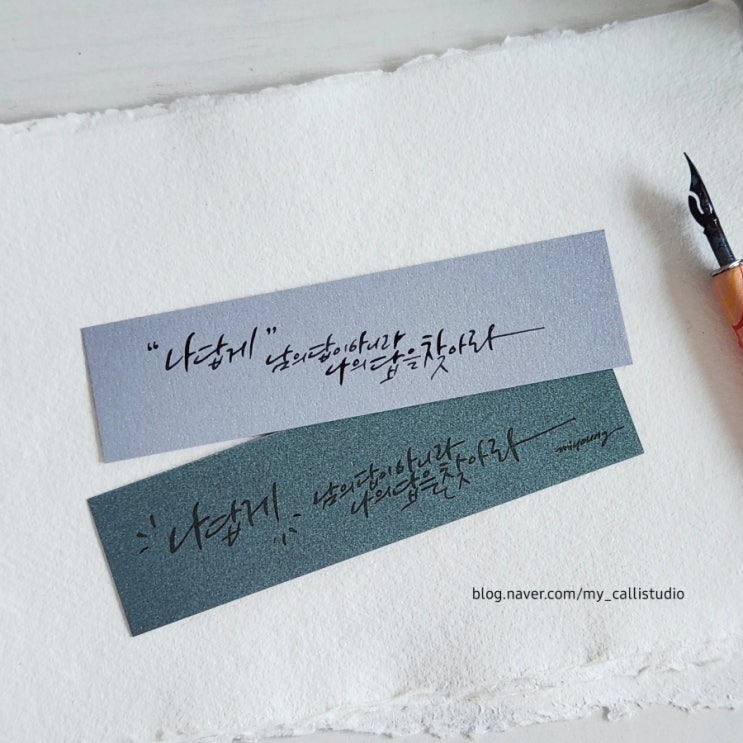 “나답게” 남의 답이 아니라
나의 답을 찾아라
나답게 남의 답이 아니라
나의 답을 찾아라
blog.naver.com/my_callistudio